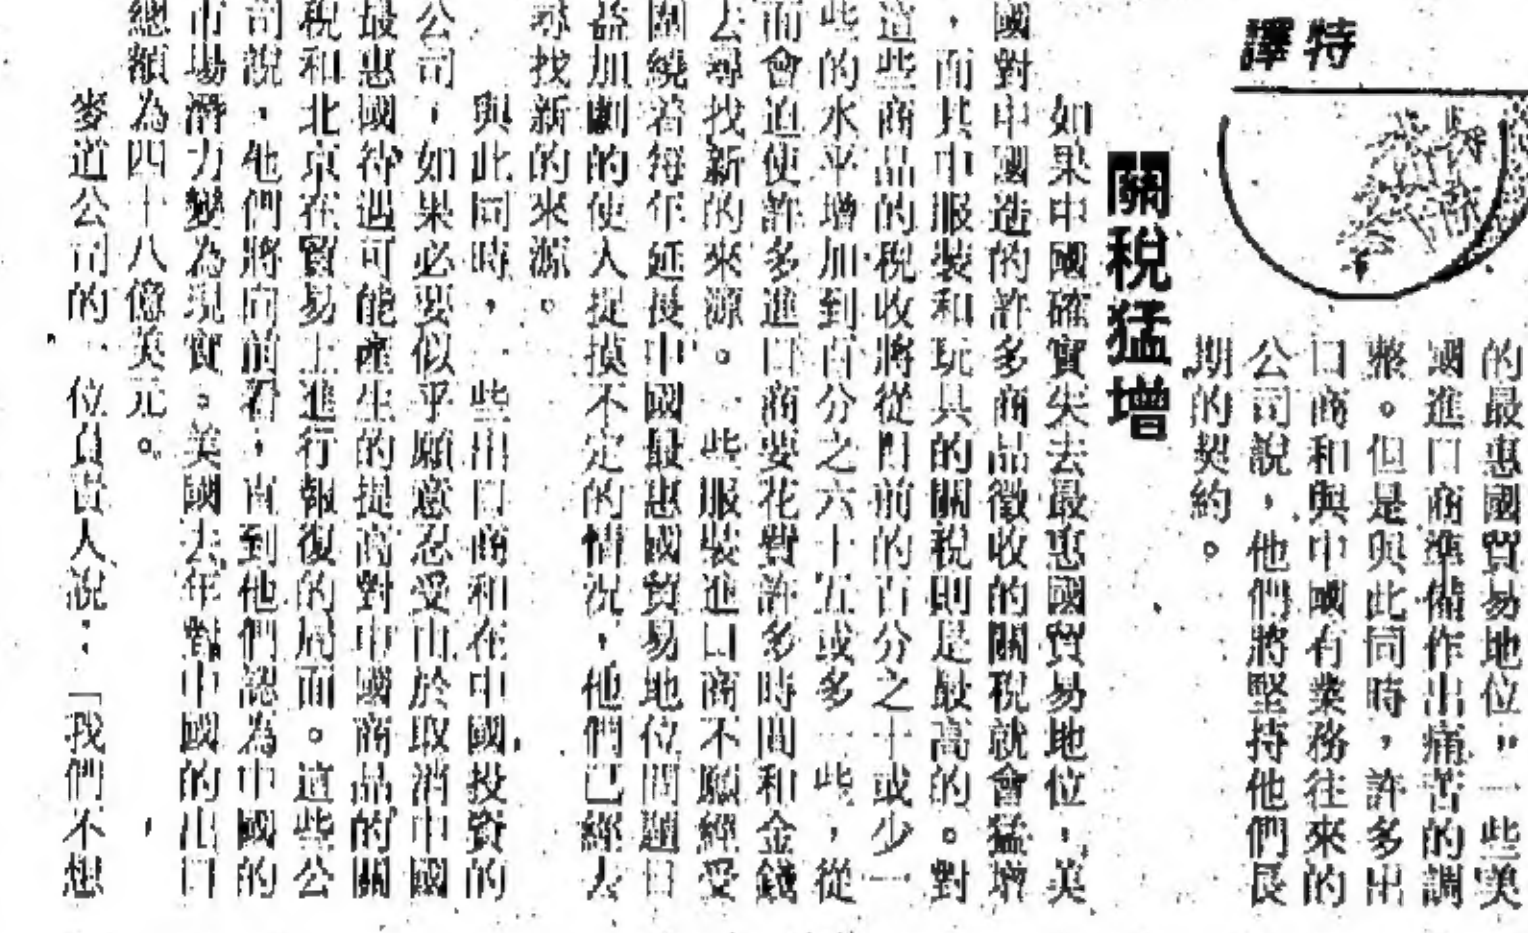 特譯
的最惠國貿易地位，一些美
國進口商準備作出痛苦的調
整。但是與此同時，許多出
口商和與中國有業務往來的
公司說，他們將堅持他們長
期的契約。
關稅猛增
如果中國確實失去最惠國貿易地位，美
國對中國造的許多商品徵收的關稅就會猛增
，而其中服裝和玩具的關稅則是最高的。對
這些商品的稅收將從目前的百分之十或少一
些的水平增加到百分之六十五或多一些，從
而會迫使許多進口商要花費許多時間和金錢
去尋找新的來源。一些服裝進口商不願經受
圍繞着每年延長中國最惠國貿易地位問題日
益加劇的使人捉摸不定的情況，他們已經去
尋找新的來源。
與此同時，一些出口商和在中國投資的
公司，如果必要似乎願意忍受由於取消中國
最惠國待遇可能產生的提高對中國商品的關
稅和北京在貿易上進行報復的局面。這些公
司說，他們將向前看，直到他們認為中國的
市場潛力變為現實。美國去年對中國的出口
總額為四十八億美元。
麥道公司的一位負責人說：「我們不想